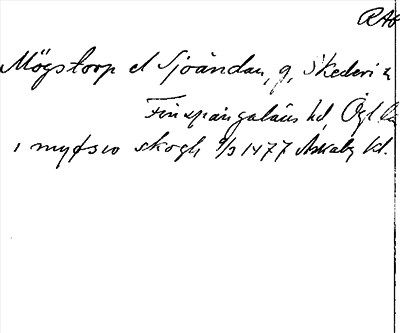 RAB
Mögstorp el Sjöändan, g, Skedevi sn
Finspångaläns hd, Ögl län
i myøswo skogh 9/3 1477 Askaby kl.